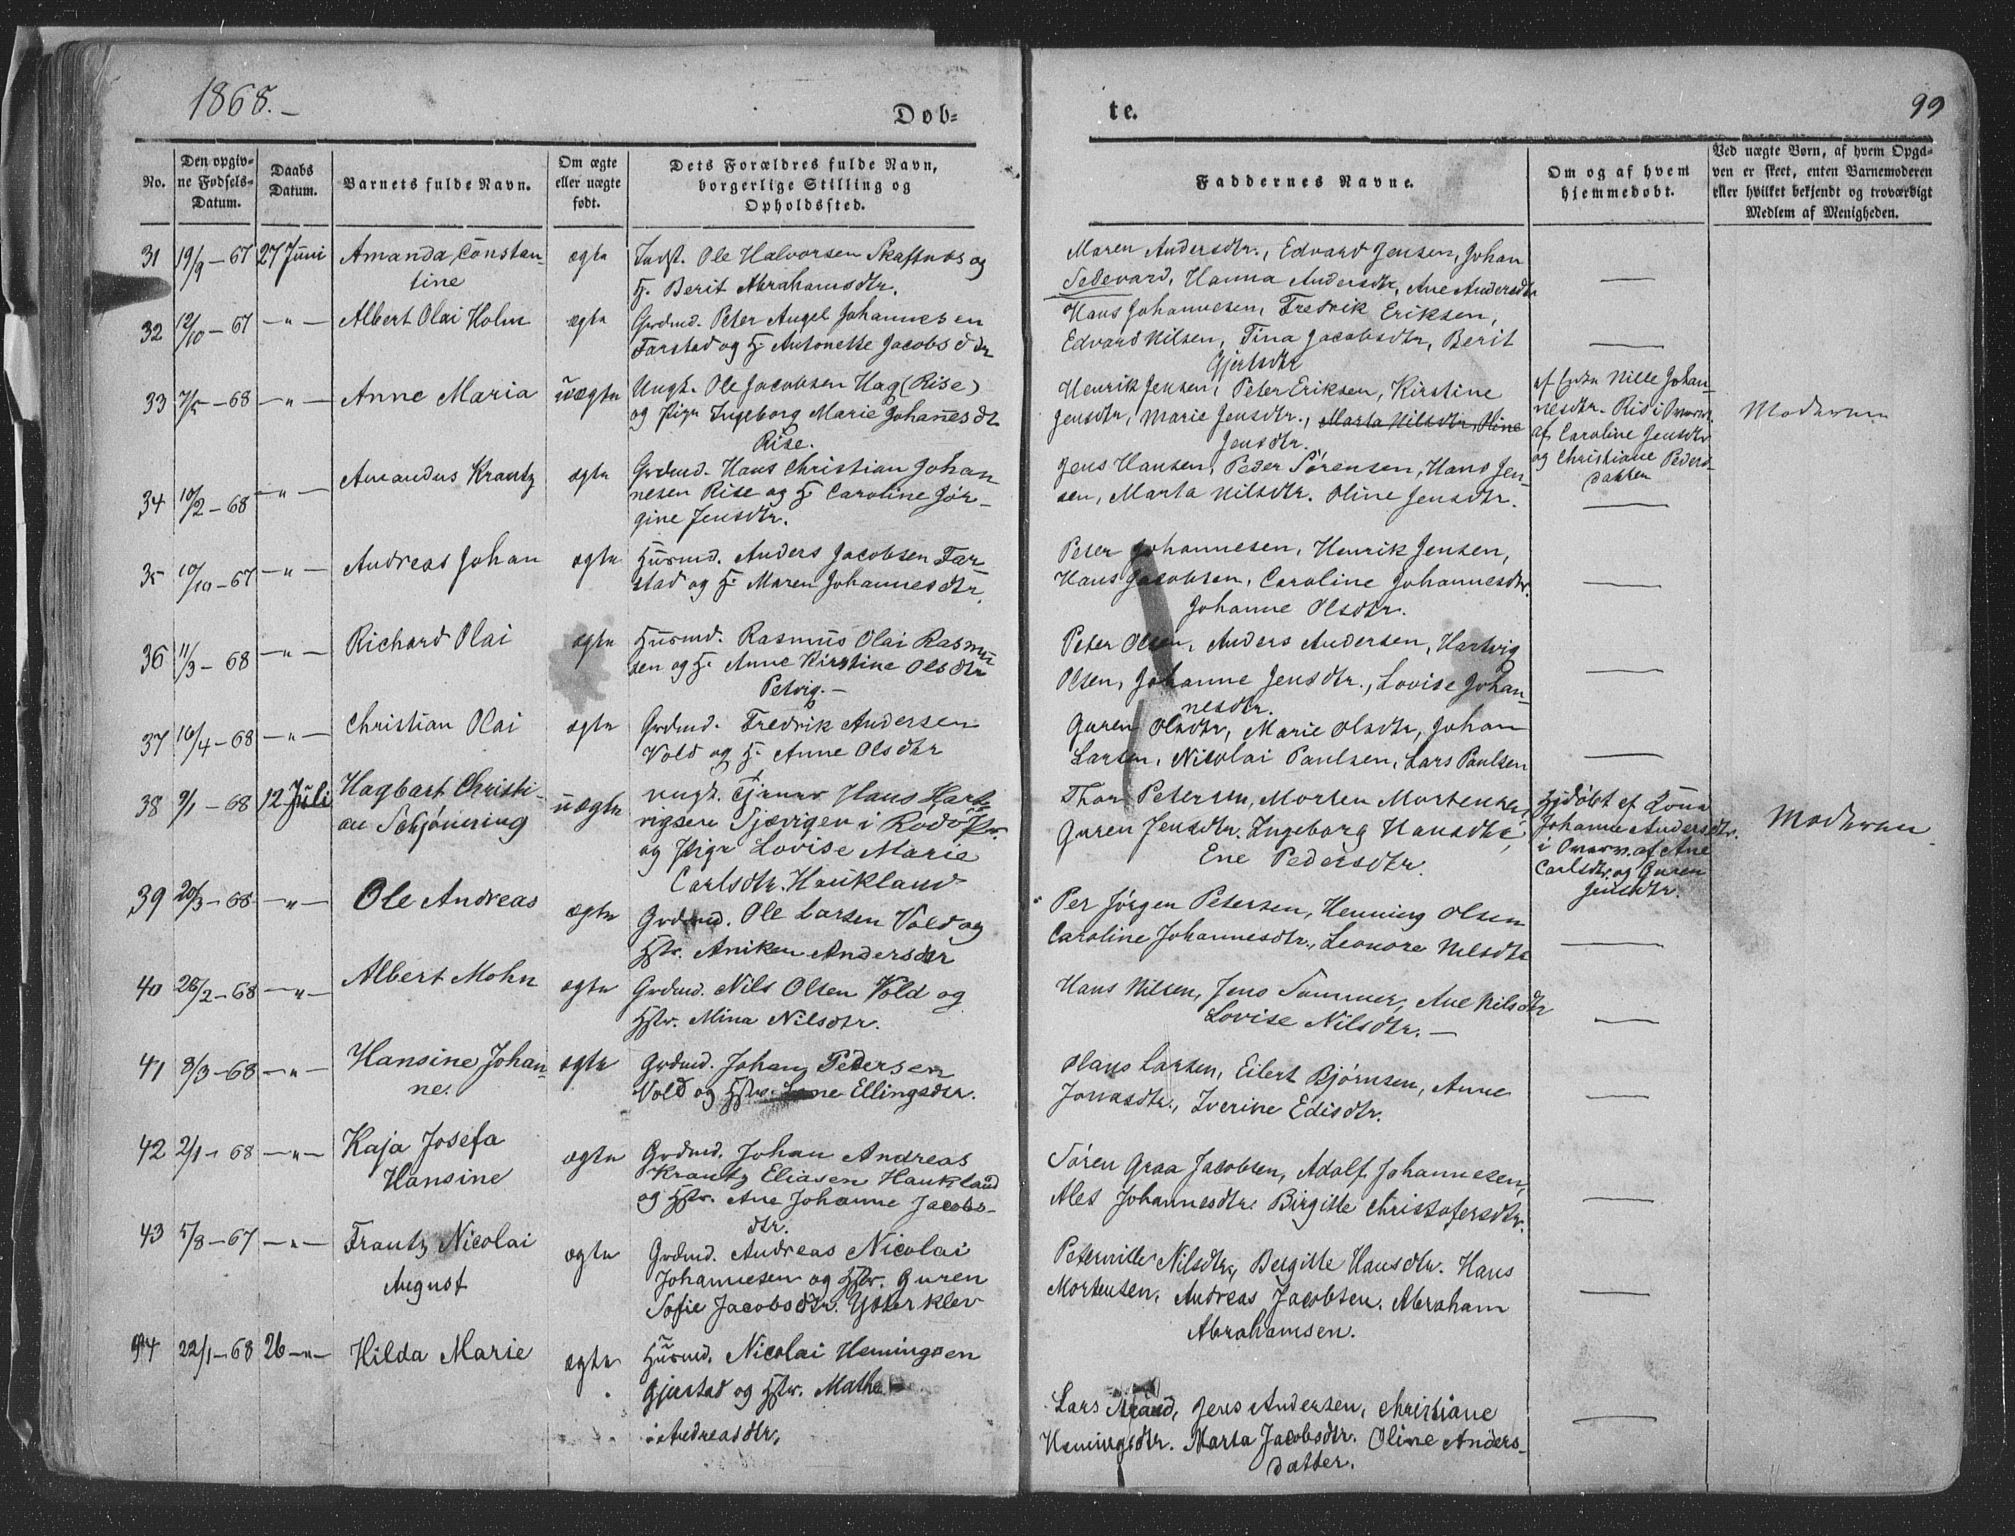 1868.-
Døb-
te.
99
No.
Den opgiv-
ne Fødsels-
Datum.
Daabs
Datum.
Barnets fulde Navn.
Om ægte
eller uægte
født.
Dets Forældres fulde Navn,
borgerlige Stilling og
Opholdssted.
Faddernes Navne.
Om og af hvem
hjemmedøbt.
Ved uægte Børn, af hvem Opga-
ven er skeet, enten Barnemoderen
eller hvilket bekjendt og troværdigt
Medlem af Menigheden.
31 19/9-67 27 Juni Amanda Constan-
tine
ægte
Indst. Ole Halvorsen Skaftnes og
H. Berit Abrahamsdtr.
Maren Andersdtr., Edvard Jensen, Johan
Sedevard, Hanna Andersdtr, Ane Andersdtr
32 12/10-67 -"- Albert Olai Holm
ægte
Grdmd. Peter Angel Johannesen
Farstad og H. Antonette Jacobsdtr
Hans Johannesen, Fredrik Eriksen,
Edvard Nilsen, Tina Jacobsdtr, Berit
Gjertsdtr
33 7/5-68 -"- Anne Maria
uægte
Ungk. Ole Jacobsen Hag (Rise)
og Pige Ingeborg Marie Johanesdt
Rise.
Henrik Jensen, Peter Eriksen, Kirstine
Jensdtr, Marie Jensdtr., Marta Nilsdtr, Oline
Jensdtr.
af Enke Nille Johan-
nesdtr. Rise i Overv.
af Caroline Jensdtr
og Christiane Peders-
datter
Moderen
34 10/2-68 -"- Amandus Krantz
ægte
Grdmd. Hans Christian Johan
nesen Rise og H. Caroline Jør-
gine Jensdtr.
Jens Hansen, Peder Sørensen, Hans Jen-
sen, Marta Nilsdtr. Oline Jensdtr.
35 10/10-67 -"- Andreas Johan
ægte
Husmd. Anders Jacobsen Far-
stad og H. Maren Johannesdtr.
Peter Johannesen, Henrik Jensen,
Hans Jacobsen, Caroline Johannesdtr.
Johanne Olsdtr.
36 11/3-68 -"- Richard Olai
ægte
Husmd. Rasmus Olai Rasmus
sen og H. Anne Kirstine Olsdtr
Petvig.-
Peter Olsen, Anders Andersen, Hartvig
Olsen, Johanne Jensdtr., Lovise Johan-
nesdtr.
37 16/4-68 -"- Christian Olai
ægte
Grdmd. Fredrik Andersen
Vold og H. Anne Olsdtr
Guren Olsdtr, Marie Olsdtr, Johan
Larsen, Nicolai Paulsen, Lars Paulsen
38 9/1-68 12 Juli Hagbart Christi-
an Schjönering
uægte
Ungk. Tjener Hans Hart-
vigsen Sjævigen i Rødø
og Pige Lovise Marie
Carlsdtr. Haukland
Thor Petersen, Morten Mortensen,
Guren Jensdtr. Ingeborg Hansdtr,
Ene Pedersdtr.
Hjdøbt af Kone
Johanne Andersdtr.
i Overv. af Ane
Carlsdtr. og Guren
Jensdtr.
Moderen
39 20/3-68 -"- Ole Andreas
ægte
Grdmd. Ole Larsen Vold og
Hstr. Aniken Andersdtr
Per Jörgen Petersen, Henning Olsen
Caroline Johannesdtr., Leonore Nilsdtr
40 26/2-68 -"- Albert Mohn
ægte
Grdmd. Nils Olsen Vold og
Hstr. Mina Nilsdtr.
Hans Nilsen, Jens Sommer, Ane Nilsdtr
Lovise Nilsdtr.-
41 8/3-68 -"- Hansine Johan-
ne.
ægte
Grdmd. Johan Pedersen
Vold og Hstr. Lene Ellingsdtr.
Olaus Larsen, Eilert Bjørnsen, Anne
Jonasdtr., Iverine Edisdtr.
42 2/1-68 -"- Kaja Josefa
Hansine
ægte
Grdmd. Johan Andreas
Krantz Eliasen Haukland
og Hstr. Ane Johanne Jacobs-
dtr.
Søren Graa Jacobsen, Adolf Johannesen,
Ales Johannesdtr. Birgitte Christofersdtr.
43 5/8-67 -"- Frantz Nicolai
August
ægte
Grdmd. Andreas Nicolai
Johannesen og Hstr. Guren
Sofie Jacobsdtr. Ytterklev
Peternille Nilsdtr, Bergitte Hansdtr. Hans
Mortensen, Andreas Jacobsen, Abraham
Abrahamsen.
44 22/1-68 26-"- Hilda Marie
ægte
Husmd. Nicolai Hemingsen
Gjerstad og Hstr. Mathe
Andreasdtr.
Lars Strand, Jens Andersen, Christiane
Hemingsdtr. Marta Jacobsdtr. Oline Anders-
datter.